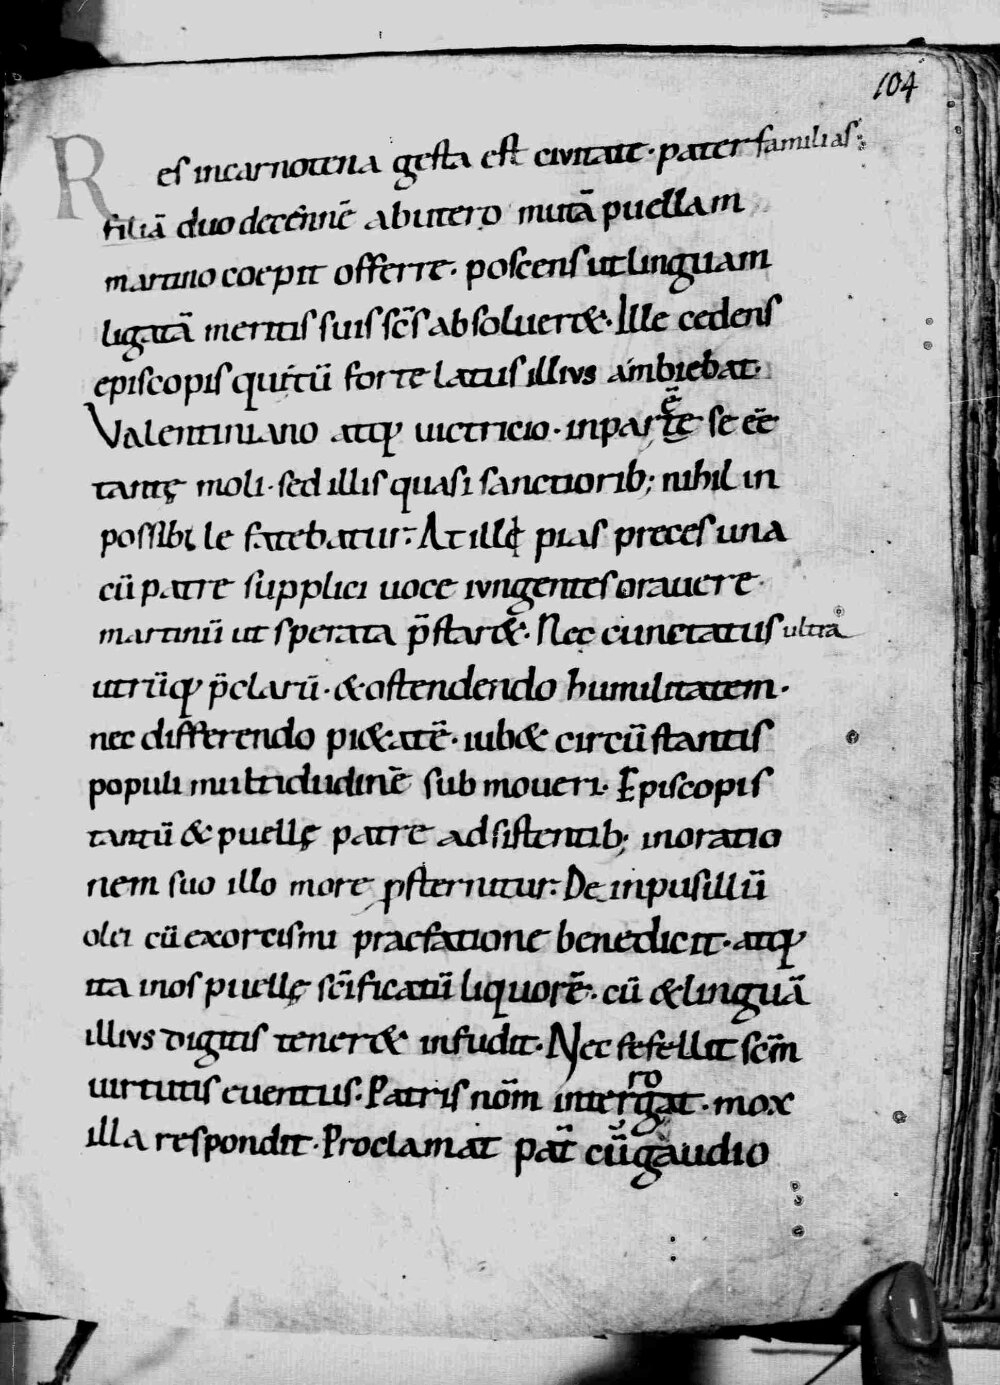 104
Res incarnotena gesta est civitate · pater familias
filiā duo decēnnē ab utero mutā puellam
martino coepit offerre · poscens ut linguam
ligatā meritis suis sc̄s absoluer& · Ille cedens
episcopis qui tū forte latus illius ambiebat ·
Valentiniano atq; uictricio · inparē tē se eē
tantę moli · sed illis quasi sanctiorib; nihil in
possibile fatebatur · At illę pias preces una
cū patre supplici uoce iungentes orauere ·
martinū ut sperata p̄star& · Nec cunctatus ultra
utrūq; p̄clarū · & ostendendo humilitatem ·
nec differendo pi&atē · iub& circūstantis
populi multidudinē submoueri · Episcopis
tantū & puellę patre adsistentib; inoratio
nem suo illo more psternitur · De inpusillū
olei cū exorcismi praefatione benedicit · atq;
ita inos puellę sc̄ificatū liquorē · cū & linguā
illius digitis tener& infudit · Nec fefellit scm̄
uirtutis euentus · Patris nom̄ interrogat · mox
illa respondit · Proclamat pat̄ cū gaudio